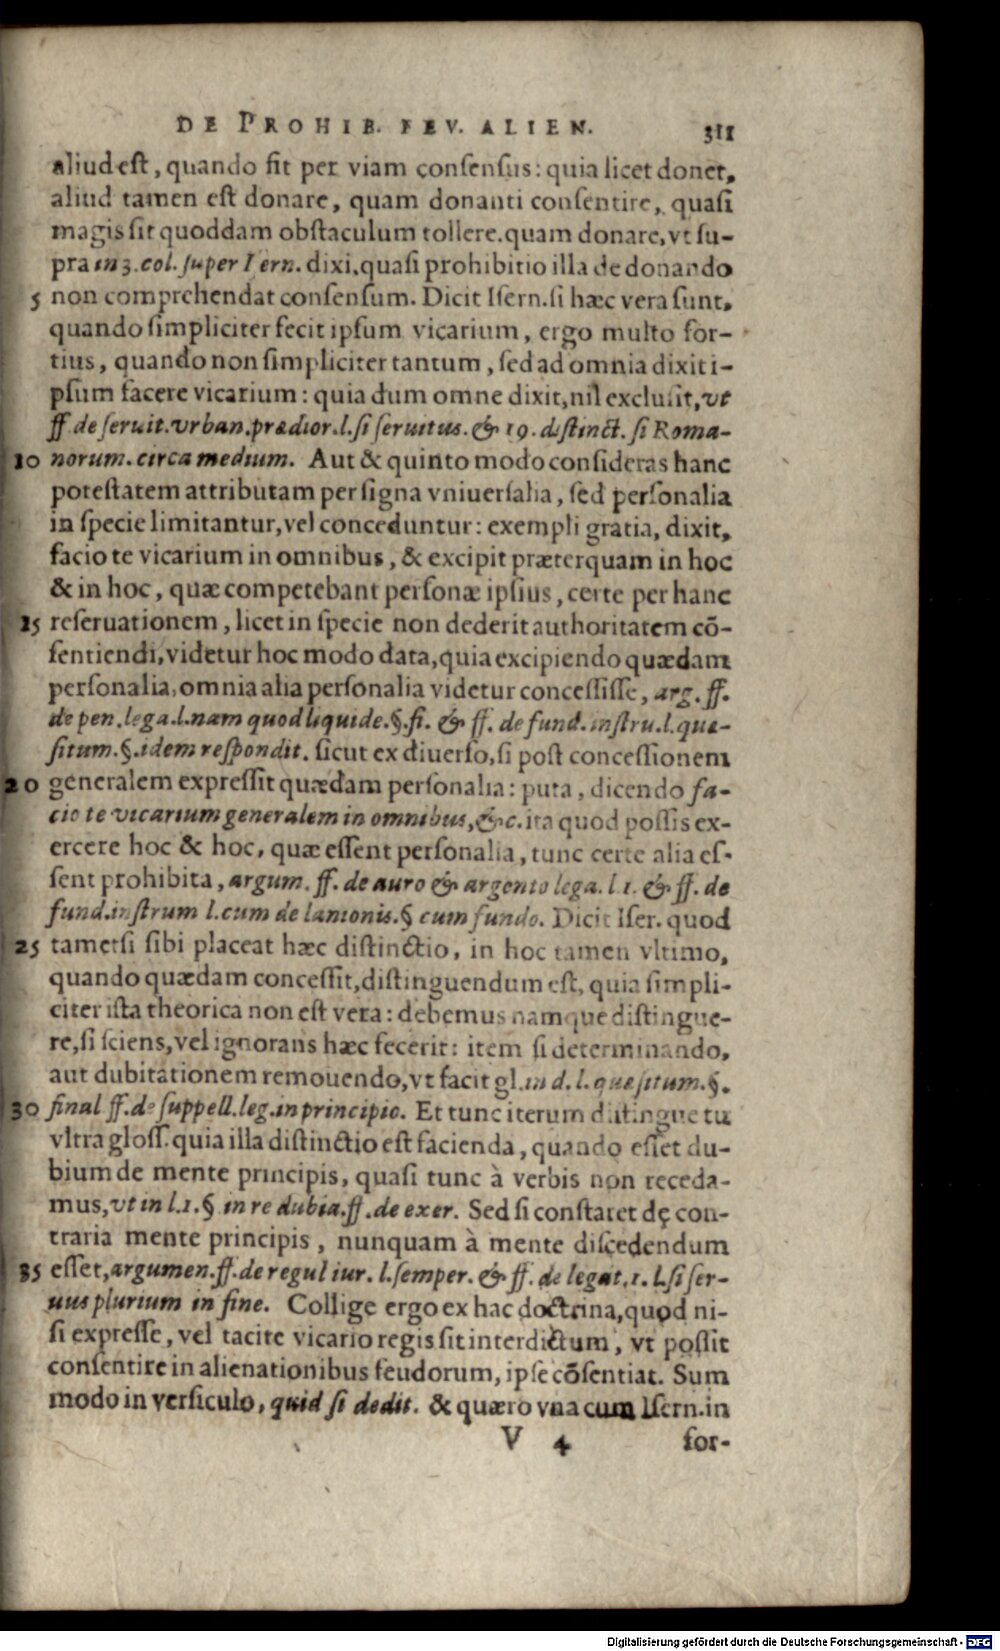 DE PROHIB. FEV. ALIEN. 311
aliud est, quando fit per viam consensus: quia licet donet,
aliud tamen est donare, quam donanti consentire, quasi
magis sit quoddam obstaculum tollere. quam donare, vt su-
pra in 3. col. super Isern. dixi. quasi prohibitio illa de donando
5 non comprehendat consensum. Dicit Isern. si hæc vera sunt,
quando simpliciter fecit ipsum vicarium, ergo multo for-
tius, quando non simpliciter tantum, sed ad omnia dixit i-
psum facere vicarium: quia dum omne dixit, nil exclusit, vt
ff de seruit. vrban. prædior. l. si seruitus. & 19. distinct. si Roma-
10 norum. circa medium. Aut & quinto modo consideras hanc
potestatem attributam per signa vniuersalia, sed personalia
in specie limitantur, vel conceduntur: exempli gratia, dixit,
facio te vicarium in omnibus, & excipit præterquam in hoc
& in hoc, quæ competebant personæ ipsius, certe per hanc
15 reseruationem, licet in specie non dederit authoritatem cō-
sentiendi, videtur hoc modo data, quia excipiendo quædam
personalia, omnia alia personalia videtur concessisse, arg. ff.
de pen. lega. l. nam quod liquide. §. fi. & ff. de fund. instru. l. quæ-
situm. §. idem respondit. sicut ex diuerso, si post concessionem
20 generalem expressit quædam personalia: puta, dicendo fa-
cio te vicarium generalem in omnibus, &c. ita quod possis ex-
ercere hoc & hoc, quæ essent personalia, tunc certe alia es-
sent prohibita, argum. ff. de auro & argento lega. l. 1. & ff. de
fund. instrum l. cum de lanionis. § cum fundo. Dicit Iser. quod
25 tametsi sibi placeat hæc distinctio, in hoc tamen vltimo,
quando quædam concessit, distinguendum est, quia simpli-
citer ista theorica non est vera: debemus namque distingue-
re, si sciens, vel ignorans hæc fecerit: item si determinando,
aut dubitationem remouendo, vt facit gl. in d. l. quæsitum. §.
30 final ff. de suppell. leg. in principio. Et tunc iterum distingue tu
vltra gloss. quia illa distinctio est facienda, quando esset du-
bium de mente principis, quasi tunc à verbis non receda-
mus, vt in l. 1. § in re dubia. ff. de exer. Sed si constaret dę con-
traria mente principis, nunquam à mente discedendum
35 esset, argumen. ff. de regul iur. l. semper. & ff. de legat. 1. l. si ser-
uus plurium in fine. Collige ergo ex hac doctrina, quod ni-
si expresse, vel tacite vicario regis sit interdictum, vt possit
consentire in alienationibus feudorum, ipse cōsentiat. Sum
modo in versiculo, quid si dedit. & quæro vna cum Isern. in
V 4 for-
Digitalisierung gefördert durch die Deutsche Forschungsgemeinschaft - DFG